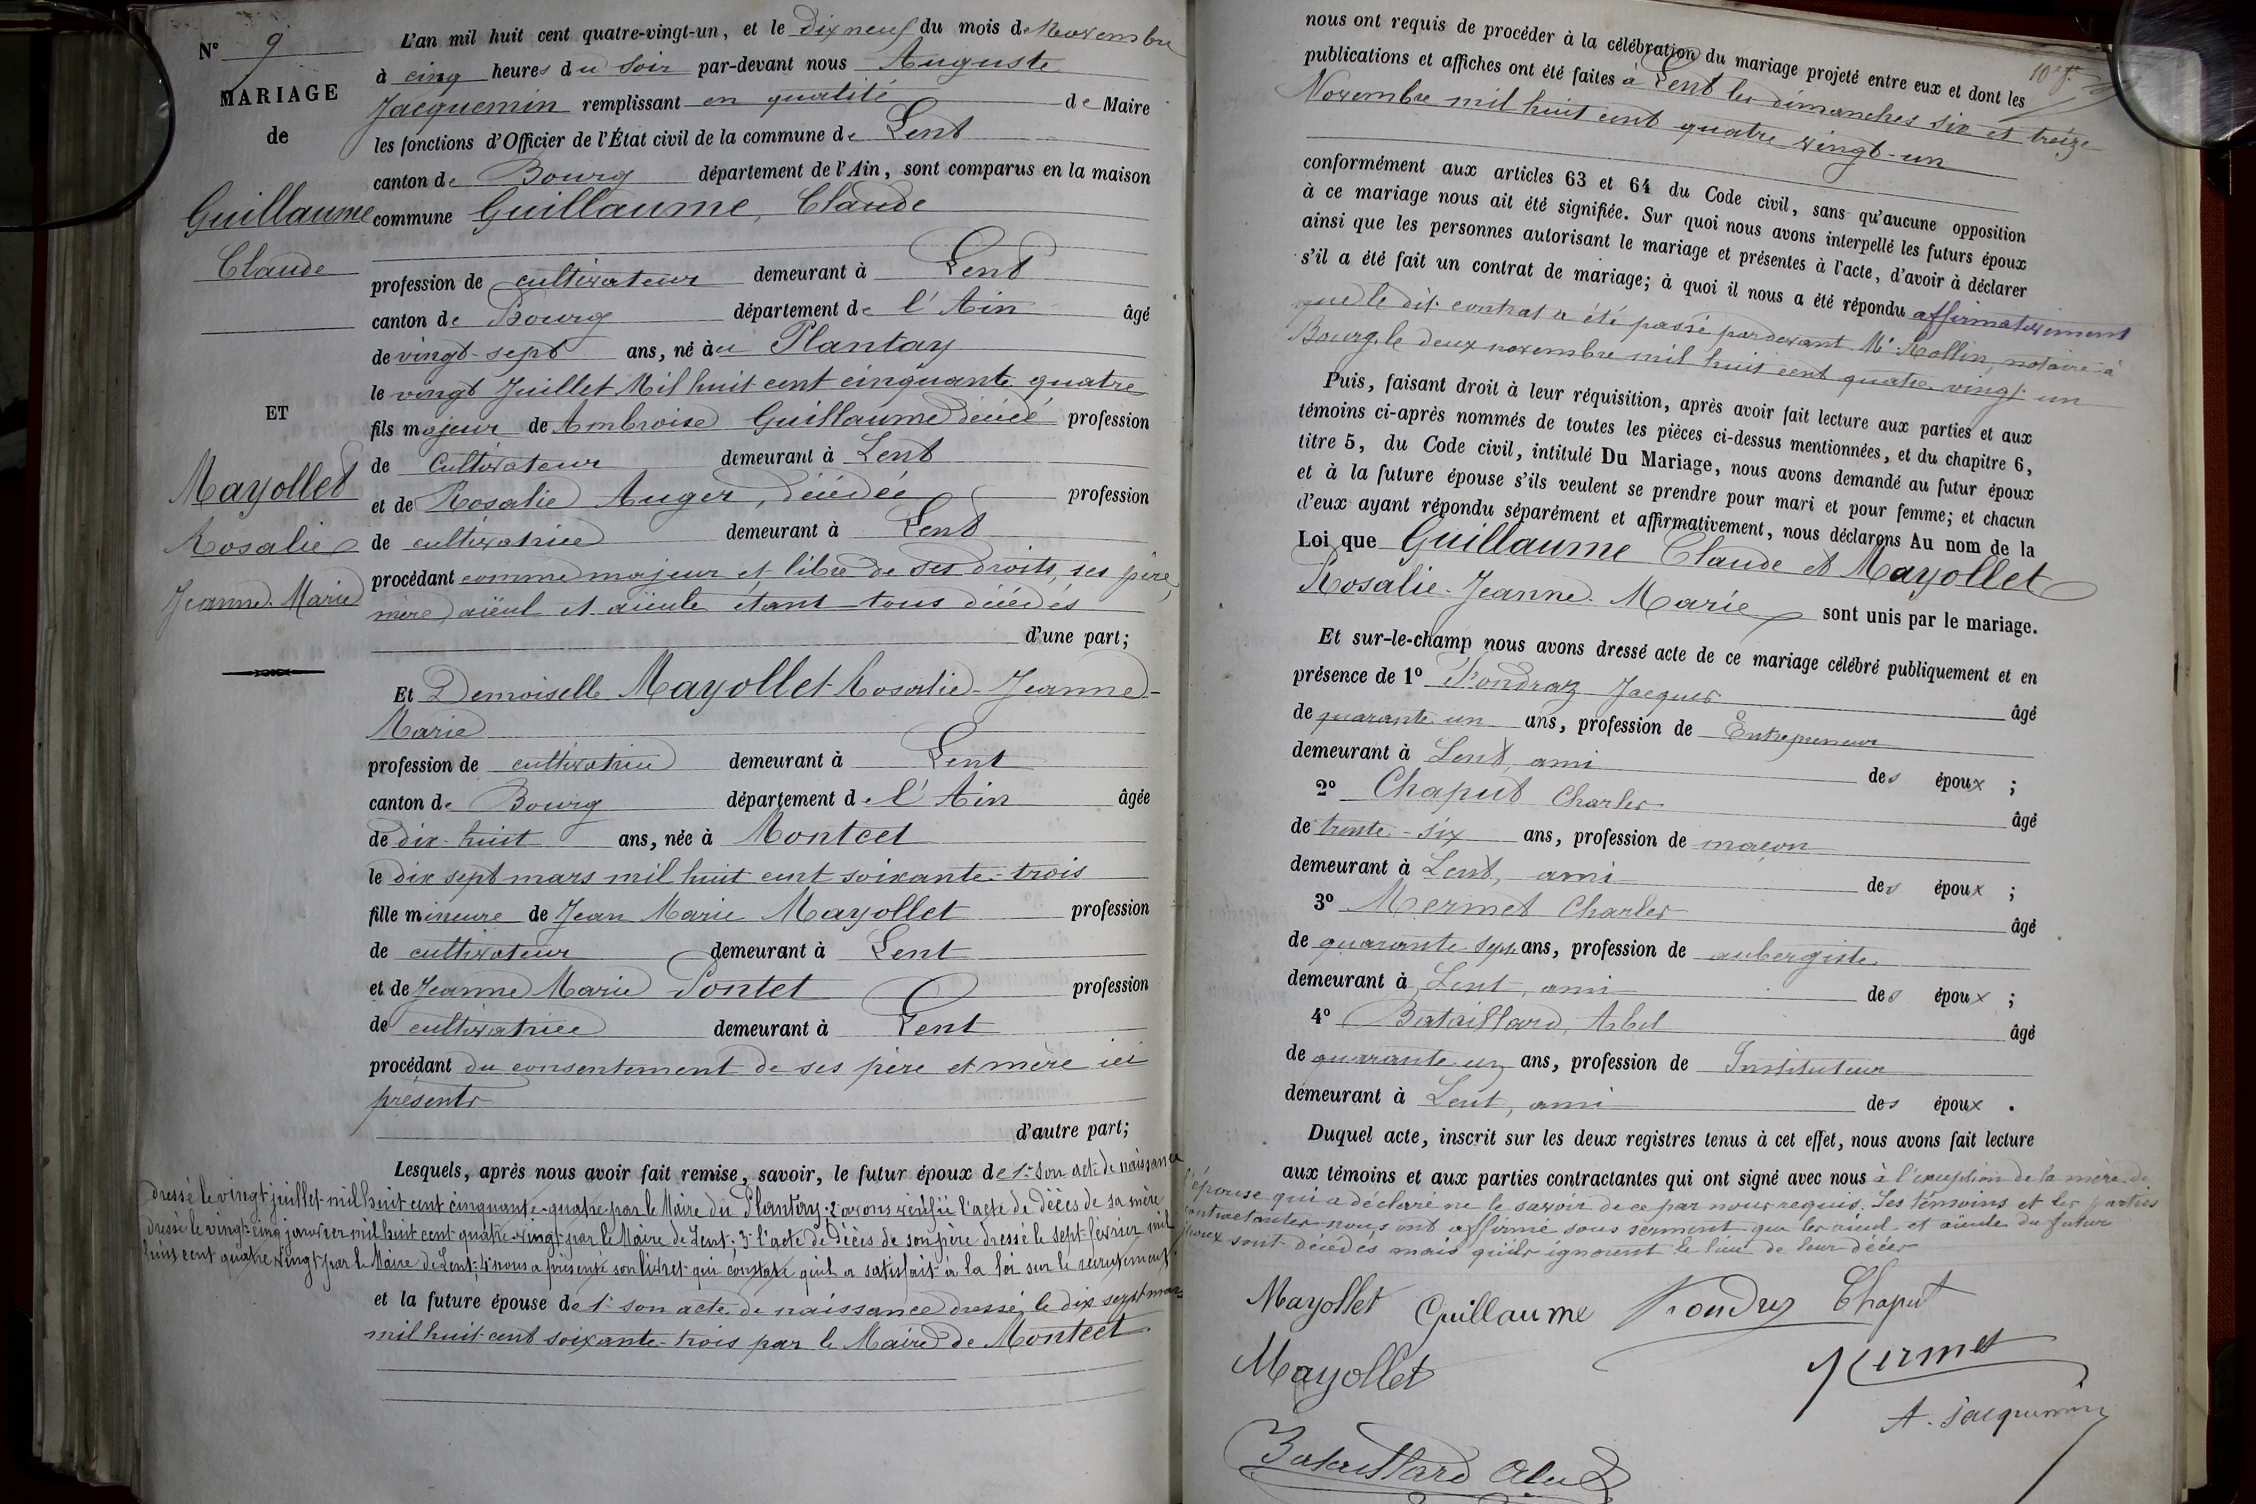 N° 9
MARIAGE
de
Guillaume
Claude
ET
Mayollet
Rosalie
Jeanne Marie
L'an mil huit cent quatre-vingt-un, et le Dix neuf du mois de Novembre
à cinq heures du Soir par-devant nous Auguste
Jacquemin remplissant en qualité de Maire
les fonctions d'Officier de l'État civil de la commune de Lent
canton de Bourg département de l'Ain, sont comparus en la maison
commune Guillaume, Claude
profession de cultivateur demeurant à Lent
canton de Bourg département de l'Ain âgé
de vingt-sept ans, né au Plantay
le vingt Juillet Mil huit cent cinquante quatre
fils majeur de Ambroise Guillaume décédé profession
de Cultivateur demeurant à Lent
et de Rosalie Auger, décédée profession
de cultivatrice demeurant à Lent
procédant comme majeur et libre de ses droits, ses père,
mère, aïeul et aïeule étant tous décédés
d'une part;
Et Demoiselle Mayollet Rosalie-Jeanne-
Marie
profession de cultivatrice demeurant à Lent
canton de Bourg département de l'Ain âgée
de dix-huit ans, née à Montcet
le dix sept mars mil huit cent soixante-trois
fille mineure de Jean Marie Mayollet profession
de cultivateur demeurant à Lent
et de Jeanne Marie Pontet profession
de cultivatrice demeurant à Lent
procédant du consentement de ses père et mère ici
présents
d'autre part;
Lesquels, après nous avoir fait remise, savoir, le futur époux de 1° son acte de naissance
dressé le vingt juillet mil huit cent cinquante-quatre par le Maire du Plantay; 2° avons vérifié l'acte de décès de sa mère
dressé le vingt-cinq janvier mil huit cent quatre-vingt par le Maire de Lent; 3° l'acte de décès de son père dressé le sept février mil
huit cent quatre vingt par le Maire de Lent; 4° nous a présenté son livret qui constate qu'il a satisfait à la loi sur le recrutement;
et la future épouse de 1° son acte de naissance dressé le dix sept mars
mil huit cent soixante-trois par le Maire de Montcet
nous ont requis de procéder à la célébration du mariage projeté entre eux et dont les
publications et affiches ont été faites à Lent les dimanches six et treize
Novembre mil huit cent quatre vingt-un
conformément aux articles 63 et 64 du Code civil, sans qu'aucune opposition
à ce mariage nous ait été signifiée. Sur quoi nous avons interpellé les futurs époux
ainsi que les personnes autorisant le mariage et présentes à l'acte, d'avoir à déclarer
s'il a été fait un contrat de mariage; à quoi il nous a été répondu affirmativement
que le dit contrat a été passé pardevant Me Rollin, notaire à
Bourg, le deux novembre mil huit cent quatre vingt un
Puis, faisant droit à leur réquisition, après avoir fait lecture aux parties et aux
témoins ci-après nommés de toutes les pièces ci-dessus mentionnées, et du chapitre 6,
titre 5, du Code civil, intitulé Du Mariage, nous avons demandé au futur époux
et à la future épouse s'ils veulent se prendre pour mari et pour femme; et chacun
d'eux ayant répondu séparément et affirmativement, nous déclarons Au nom de la
Loi que Guillaume Claude et Mayollet
Rosalie-Jeanne-Marie sont unis par le mariage.
Et sur-le-champ nous avons dressé acte de ce mariage célébré publiquement et en
présence de 1° Fondraz Jacques âgé
de quarante un ans, profession de Entrepreneur
demeurant à Lent, ami des époux ;
2° Chaput Charles âgé
de trente-six ans, profession de maçon
demeurant à Lent, ami des époux ;
3° Mermet Charles âgé
de quarante-sept ans, profession de aubergiste
demeurant à Lent, ami des époux ;
4° Bataillard, Abel âgé
de quarante un ans, profession de Instituteur
demeurant à Lent, ami des époux .
Duquel acte, inscrit sur les deux registres tenus à cet effet, nous avons fait lecture
aux témoins et aux parties contractantes qui ont signé avec nous à l'exception de la mère de
l'épouse qui a déclaré ne le savoir de ce par nous requis. Les témoins et les parties
contractantes nous ont affirmé sous serment que les aïeul et aïeule du futur
époux sont décédés mais qu'ils ignorent le lieu de leur décès
Mayollet Guillaume Fondraz Chaput
Mayollet Mermet
A. Jacquemin
Bataillard Abel